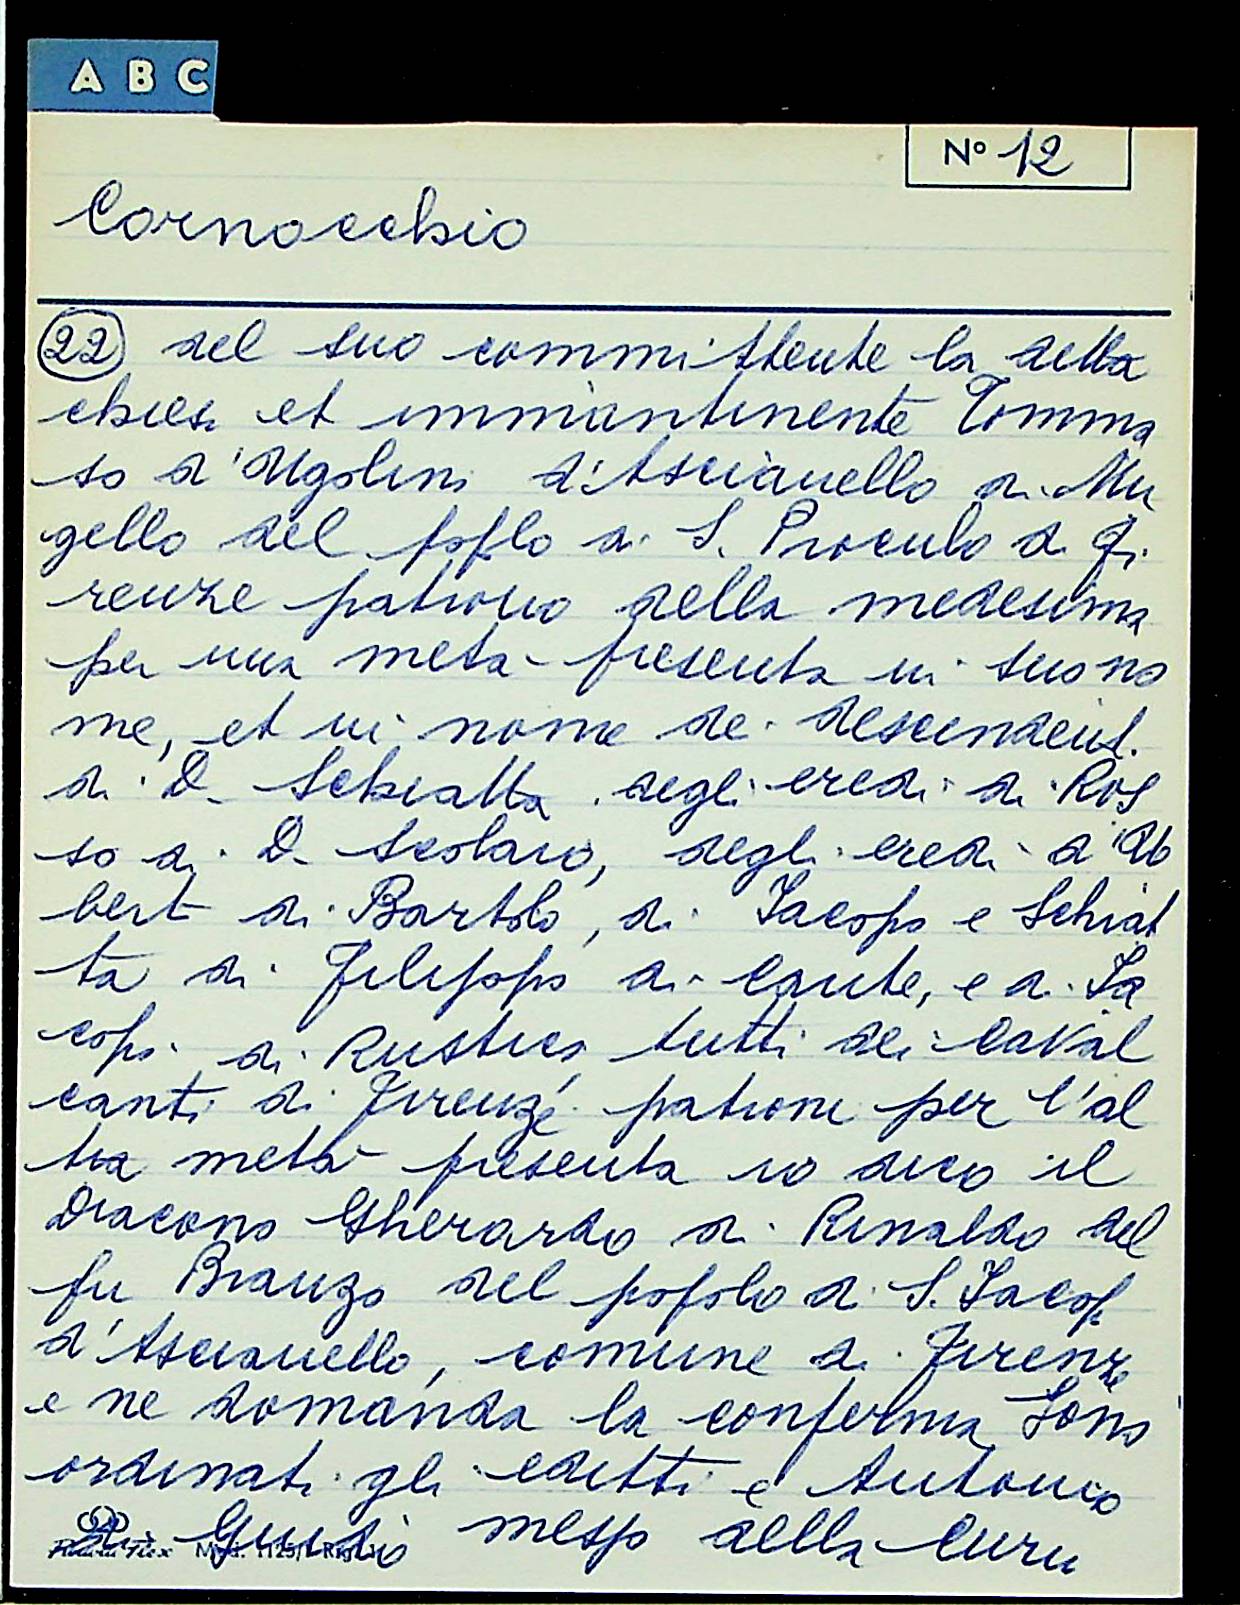 A B C
N° 12
Cornocchio
22 del suo committente la detta
chiesa et immantinente Tomma
so d'Ugolino d'Ascianello di Mu
gello del poplo di S. Proculo di Fi
renze patrono della medesima
per una metà presenta in suo no
me, et in nome de descendenti
di D. Schiatta degli eredi di Ros
so di D. Scolaro, degli eredi d'Ub
berto di Bartolo, di Jacopo e Schiat
ta di Filippo di Cante, e di Ja
copo di Rustico tutti dei Caval
canti di Firenze patroni per l'al
tra metà presenta io dico il
Diacono Gherardo di Rinaldo del
fu Bianzo del popolo di S. Jacopo
d'Ascianello, comune di Firenze
e ne domanda la conferma Sono
ordinati gli editti e Antonio
di Guido messo della Curia